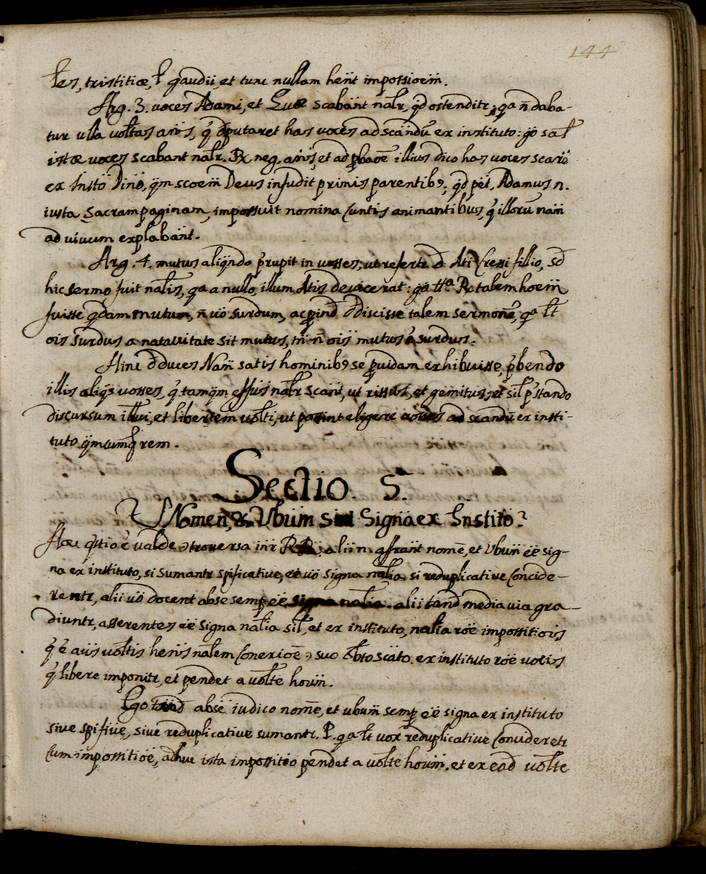 144
les, tristitiæ, l gaudii, et tunc nullam hent impossioem.
Arg. 3. voces Adami, et Evæ scabant nalr, qd ostenditr, qa n daba-
tur ulla voltas aïs, q dputaret has voces ad scandu ex instituto: go sal
istæ voces scabant nalr. Rx neg. ans, et ad pbaoe illius dico has voces scare
ex Insto Dino, qm scoem Deus infudit primis parentib9, qd pet, Adamus n.
iusta Sacram paginam, impossuit nomina cuntis animantibus, q illoru nam
ad vivum explabant.
Arg. 4. mutus aliqndo prupit in vosses, ut referte d Ati Cressi fillio, sd
hic sermo fuit nalis, qa a nulo, illum Atis devicerat: go
fuisse qdam mutum, n vo surdum, ac pind ddiscisse talem sermone, qa lt
ois surdus a natavitate sit mutus, tn n ois mutus e surdus.
Hinc dduces Nam satis hominib9 se pvidam exhibuisse, pbendo
illis aliqs vosses, q tamqm effus nalr scant, ut rissus, et gemitus, et sil pstando
discursum illis, et libertem volti, ut possint eligere voses ad scandu ex insti-
tuto, qmcumq rem.
Sectio. 5.
Nomen, & Vbum sint Signa ex Instito?
Hæc qstio e valde controversa intr RR; alii n. assrant nome, et Vbum ee sig-
na ex instituto, si sumantr spificative, et vo signa nalia si reduplicative Concide-
rentr, alii vo docent abse semp ee signa nalia. alii tand media via gra-
diuntr, asserentes ee signa nalia sil, et ex instituto, nalia roe impossitiois
q e aiis voltis hens nalem Conexioe 9 suo Obto scato, ex instituto roe vocis
q libere imponitr, et pendet a volte houm.
Ego abse iudico nome, et vbum semp ee signa ex instituto
sive spifive, sive reduplicative sumantr. P. qa lt vox reduplicative Concideretr
cum impossitioe, adhuc ista impossitio pendet a volte houm, et ex ead volte